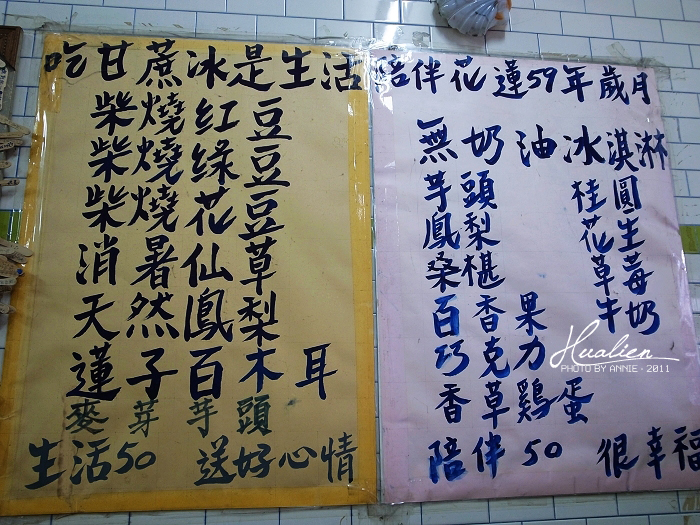 吃甘蔗冰是生活
柴燒紅豆
柴燒綠豆
柴燒花豆
消暑仙草
天然鳳梨
蓮子百木耳
麥芽芋頭
生活50 送好心情
陪伴花蓮59年歲月
無奶油冰淇淋
芋頭 桂圓
鳳梨 花生
桑椹 草莓
百香果 牛奶
巧克力
香草雞蛋
陪伴50 很幸福
Hualien
PHOTO BY ANNIE · 2011